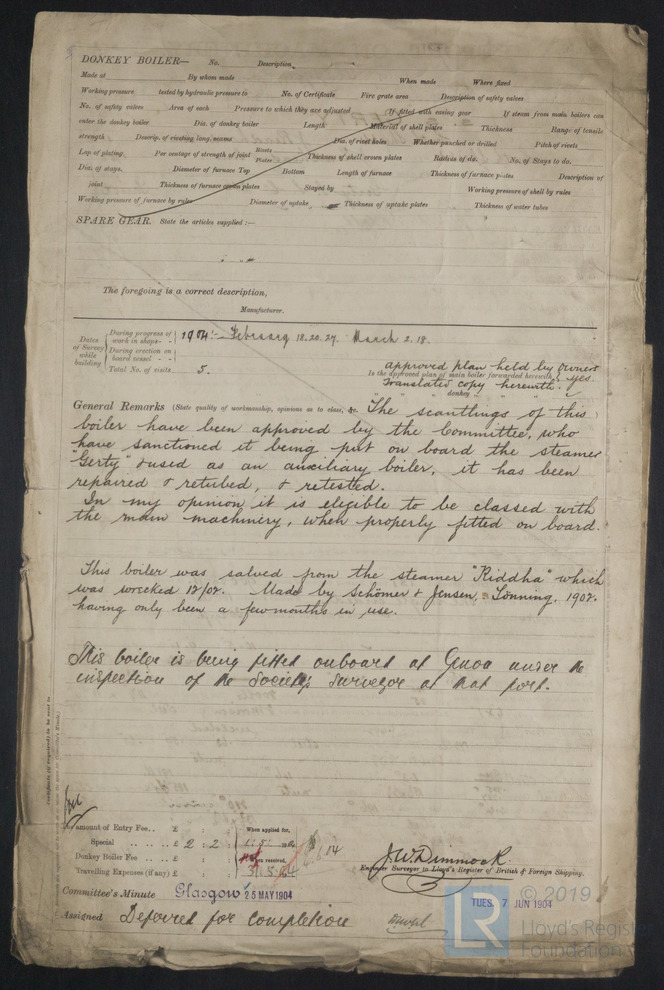 DONKEY BOILER— No. Description
Made at By whom made When made Where fixed
Working pressure tested by hydraulic pressure to No. of Certificate Fire grate area Description of safety valves
No. of safety valves Area of each Pressure to which they are adjusted If fitted with easing gear If steam from main boilers can
enter the donkey boiler Dia. of donkey boiler Length Material of shell plates Thickness Range of tensile
strength Descrip. of riveting long. seams Dia. of rivet holes Whether punched or drilled Pitch of rivets
Lap of plating Per centage of strength of joint Rivets Plates Thickness of shell crown plates Radius of do. No. of Stays to do.
Dia. of stays. Diameter of furnace Top Bottom Length of furnace Thickness of furnace plates Description of
joint Thickness of furnace crown plates Stayed by Working pressure of shell by rules
Working pressure of furnace by rules Diameter of uptake Thickness of uptake plates Thickness of water tubes
SPARE GEAR. State the articles supplied:—
The foregoing is a correct description,
Manufacturer.
Dates of Survey while building
During progress of work in shops - - 1904:- February 18.20.27. March 2.18.
During erection on board vessel - - -
Total No. of visits 5.
approved plan held by owners
Is the approved plan of main boiler forwarded herewith yes
Translated copy herewith.
donkey
General Remarks (State quality of workmanship, opinions as to class, &c. The scantlings of this
boiler have been approved by the Committee, who
have sanctioned it being put on board the steamer
"Gerty" & used as an auxiliary boiler, it has been
repaired & retubed, & retested.
In my opinion it is eligible to be classed with
the main machinery, when properly fitted on board.
This boiler was salved from the steamer "Riddha" which
was wrecked 12/02. Made by Schömer & Jensen, Tönning, 1902.
having only been a few months in use.
This boiler is being fitted onboard at Genoa under the
inspection of the Society's Surveyor at that port.
Certificate (if required) to be sent to
The amount of Entry Fee.. £ : : When applied for,
Special .. .. .. .. £ 2 : 2 : 1.5.1904
Donkey Boiler Fee .. .. .. £ : : When received,
Travelling Expenses (if any) £ : : 3.5.04
J. W. Dimmock
Engineer Surveyor to Lloyd's Register of British & Foreign Shipping.
Committee's Minute Glasgow 25 MAY 1904
TUES. 7 JUN 1904
Assigned Deferred for completion
LR © 2019
Lloyd's Register
Foundation